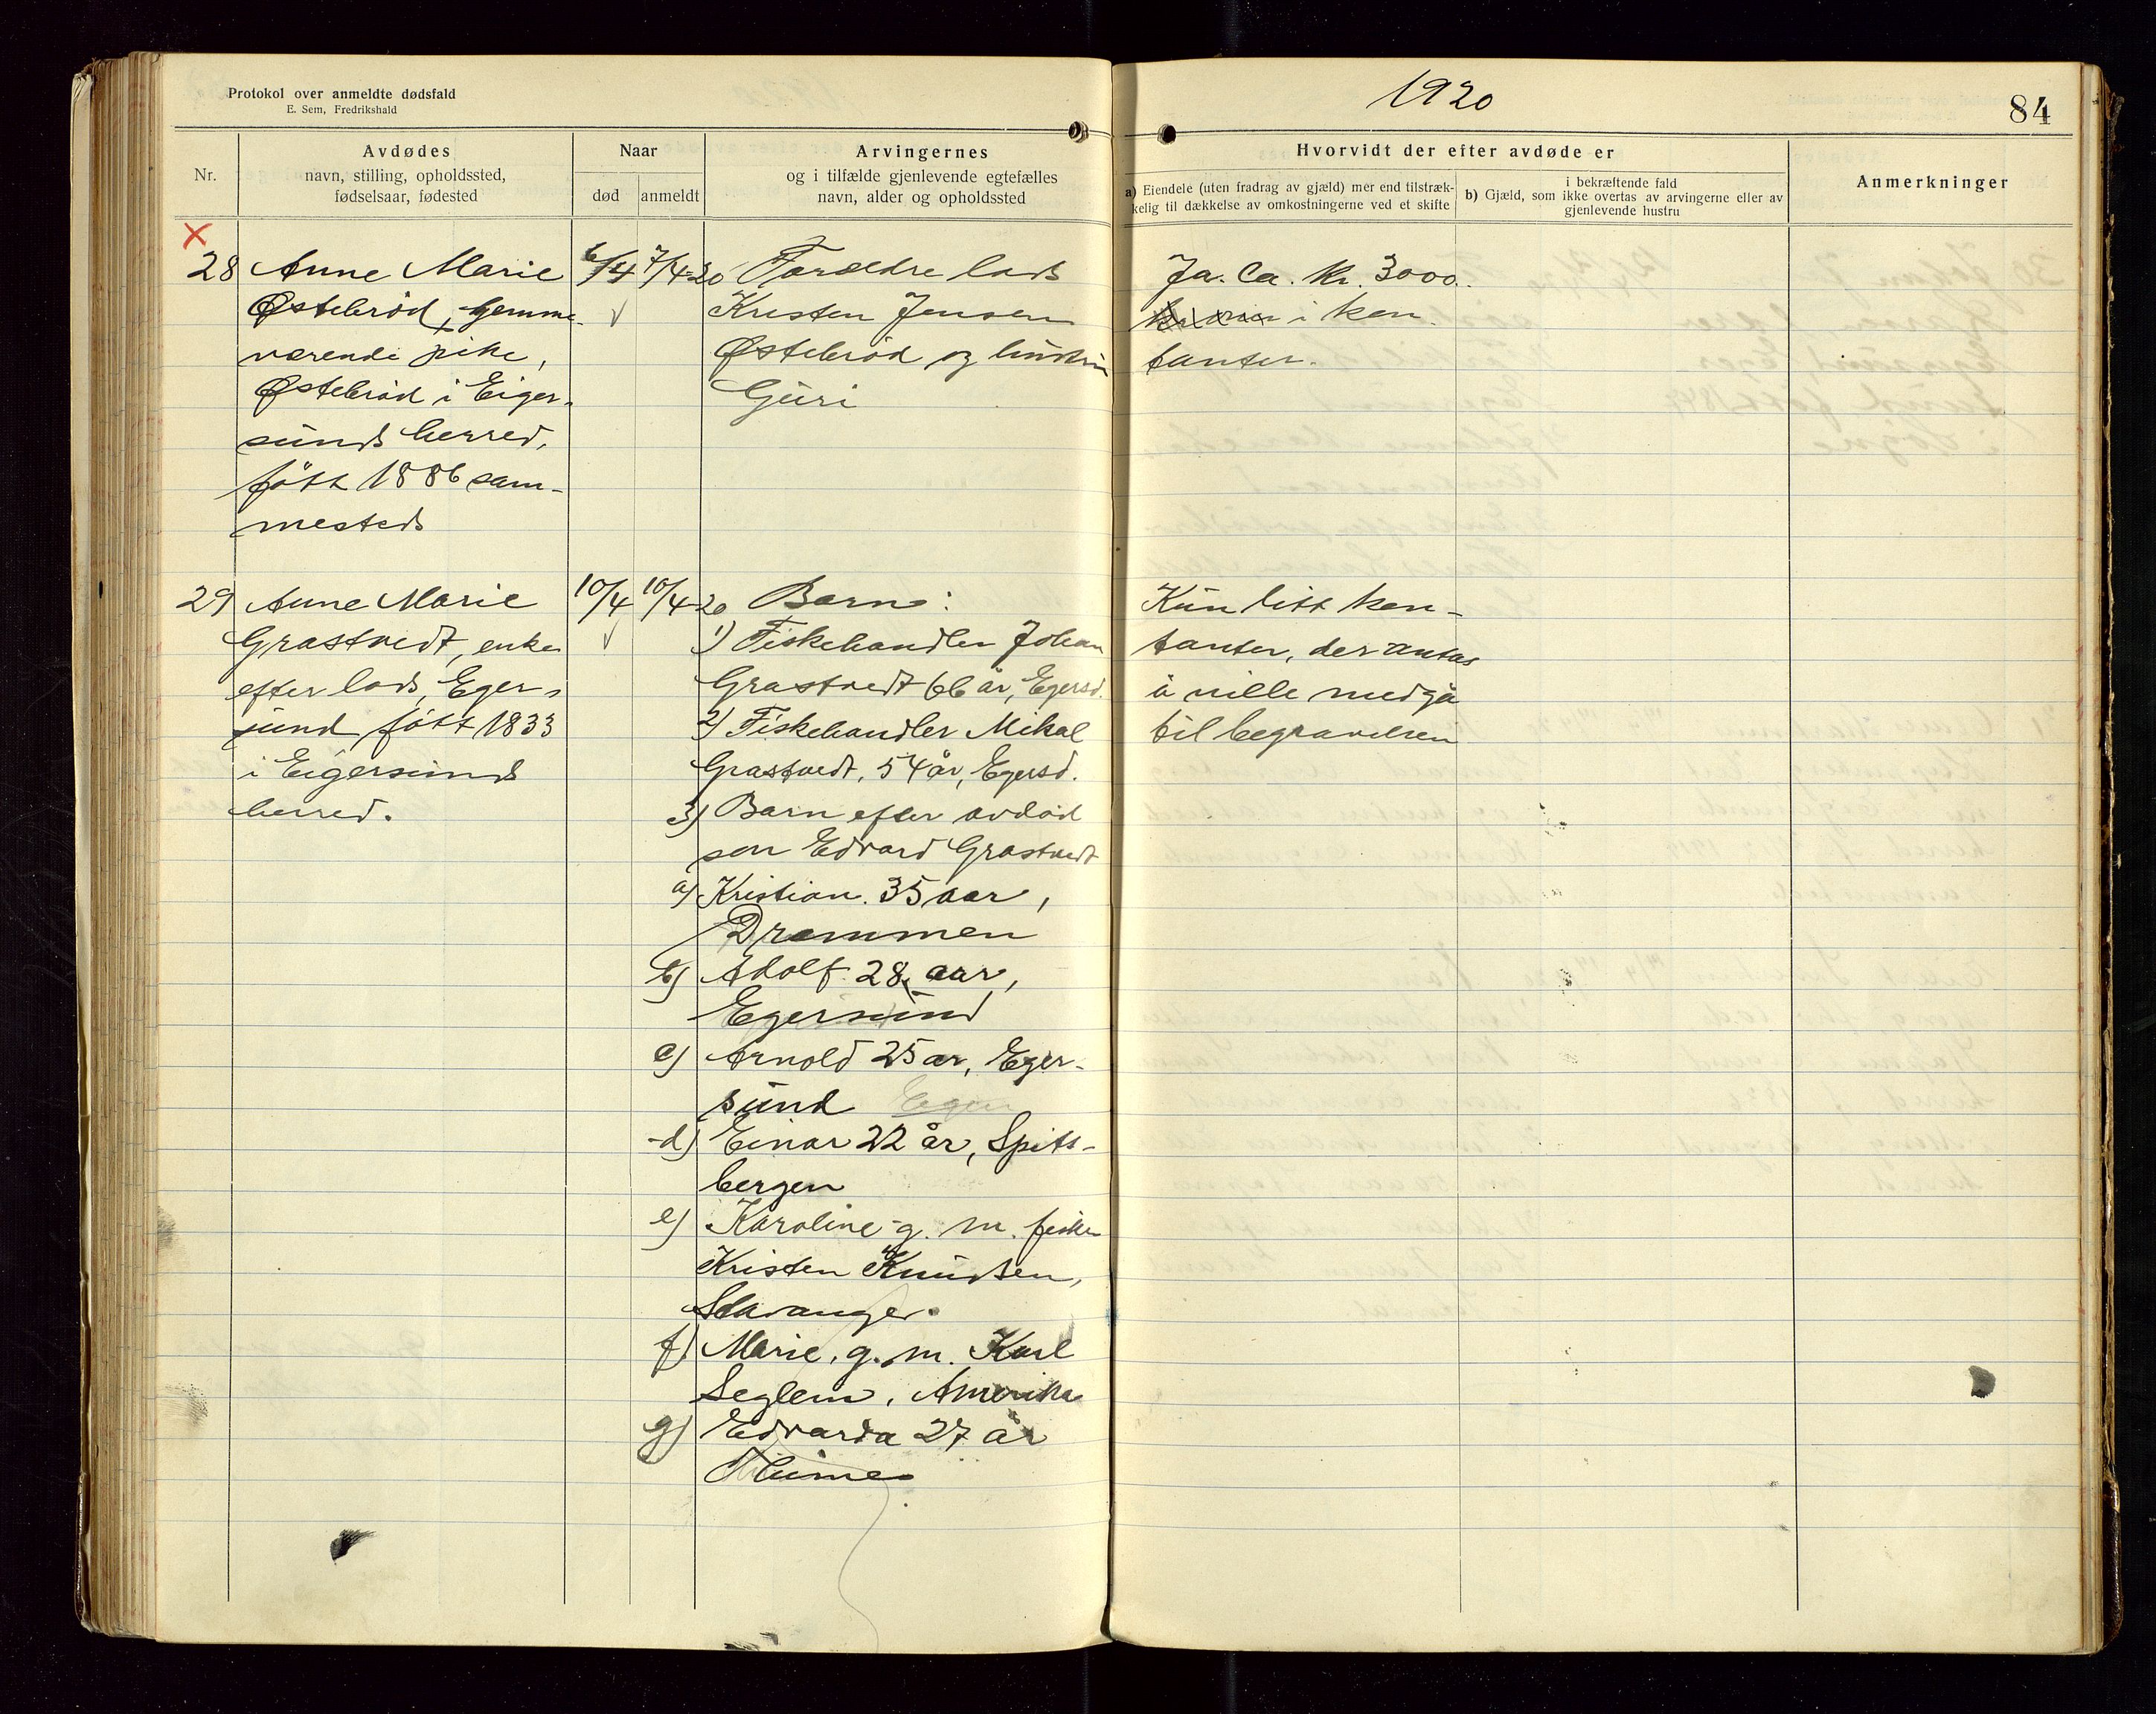 Protokol over anmeldte dødsfald
E. Sem, Fredrikshald
1920
84
Nr.
Avdødes
navn, stilling, opholdssted,
fødselsaar, fødested
Naar
død
anmeldt
Arvingernes
og i tilfælde gjenlevende egtefælles
navn, alder og opholdssted
Hvorvidt der efter avdøde er
a) Eiendele (uten fradrag av gjæld) mer end tilstræk-
kelig til dækkelse av omkostningerne ved et skifte
i bekræftende fald
b) Gjæld, som ikke overtas av arvingerne eller av
gjenlevende hustru
Anmerkninger
X
28
Anne Marie
Østebrød, hjemme-
værende pike,
Østebrød i Eiger-
sunds herred,
født 1886 sam-
mesteds
6/4
7/4-20
Foræeldre lods
Kristen Jensen
Østebrød og hustru
Guri
Ja. Ca. Kr. 3000.
i kon-
tanter.
29
Anne Marie
Grastvedt, enke
efter lods, Eger-
sund født 1833
i Eigersunds
herred.
10/4
10/4-20
Barn:
1) Fiskehandler Johan
Grastvedt 66 år, Egersd.
2) Fiskehandler Mikal
Grastvedt, 54 år, Egersd.
3) Barn efter avdød
søn Edvard Grastvedt
a) Kristian. 35 aar,
Drammen
b) Adolf 28 aar,
Egersund
c) Arnold 25 ar, Eger-
sund
d) Einar 22 år, Spits-
bergen
e) Karoline g. m. fisker
Kristen Knudsen,
Stavanger.
f) Marie, g. m. Karl
Seglem, Amerika
g) Edvarda 27 år
Hiime
Kun litt kon-
tanter, der antas
å ville medgå
til begravelsen